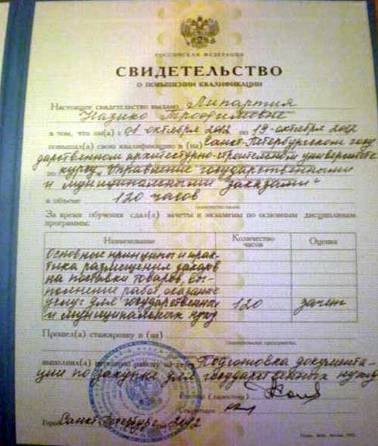 РОССИЙСКАЯ ФЕДЕРАЦИЯ
СВИДЕТЕЛЬСТВО
О ПОВЫШЕНИИ КВАЛИФИКАЦИИ
Настоящее свидетельство выдано Липартия
Назико Трофимовне
в том, что он(а) с 01 октября 2012 по 19 октября 2012
повышал(а) свою квалификацию в (на) Санкт-Петербургском госу
дарственном архитектурно-строительном университете
по курсу „Управление государственными
и муниципальными заказами"
в объеме 120 часов
За время обучения сдал(а) зачеты и экзамены по основным дисциплинам
программы:
Наименование Количество часов Оценка
Основные принципы и прак
тика размещения заказов
на поставки товаров, вы
полнение работ, оказание
услуг для государственных
и муниципальных нужд 120 зачет
Прошел(а) стажировку в (на)
выполнил(а) работу на тему Подготовка документа
ции по закупке для государственных нужд
Ректор (директор)
Секретарь
Город Санкт-Петербург 2012